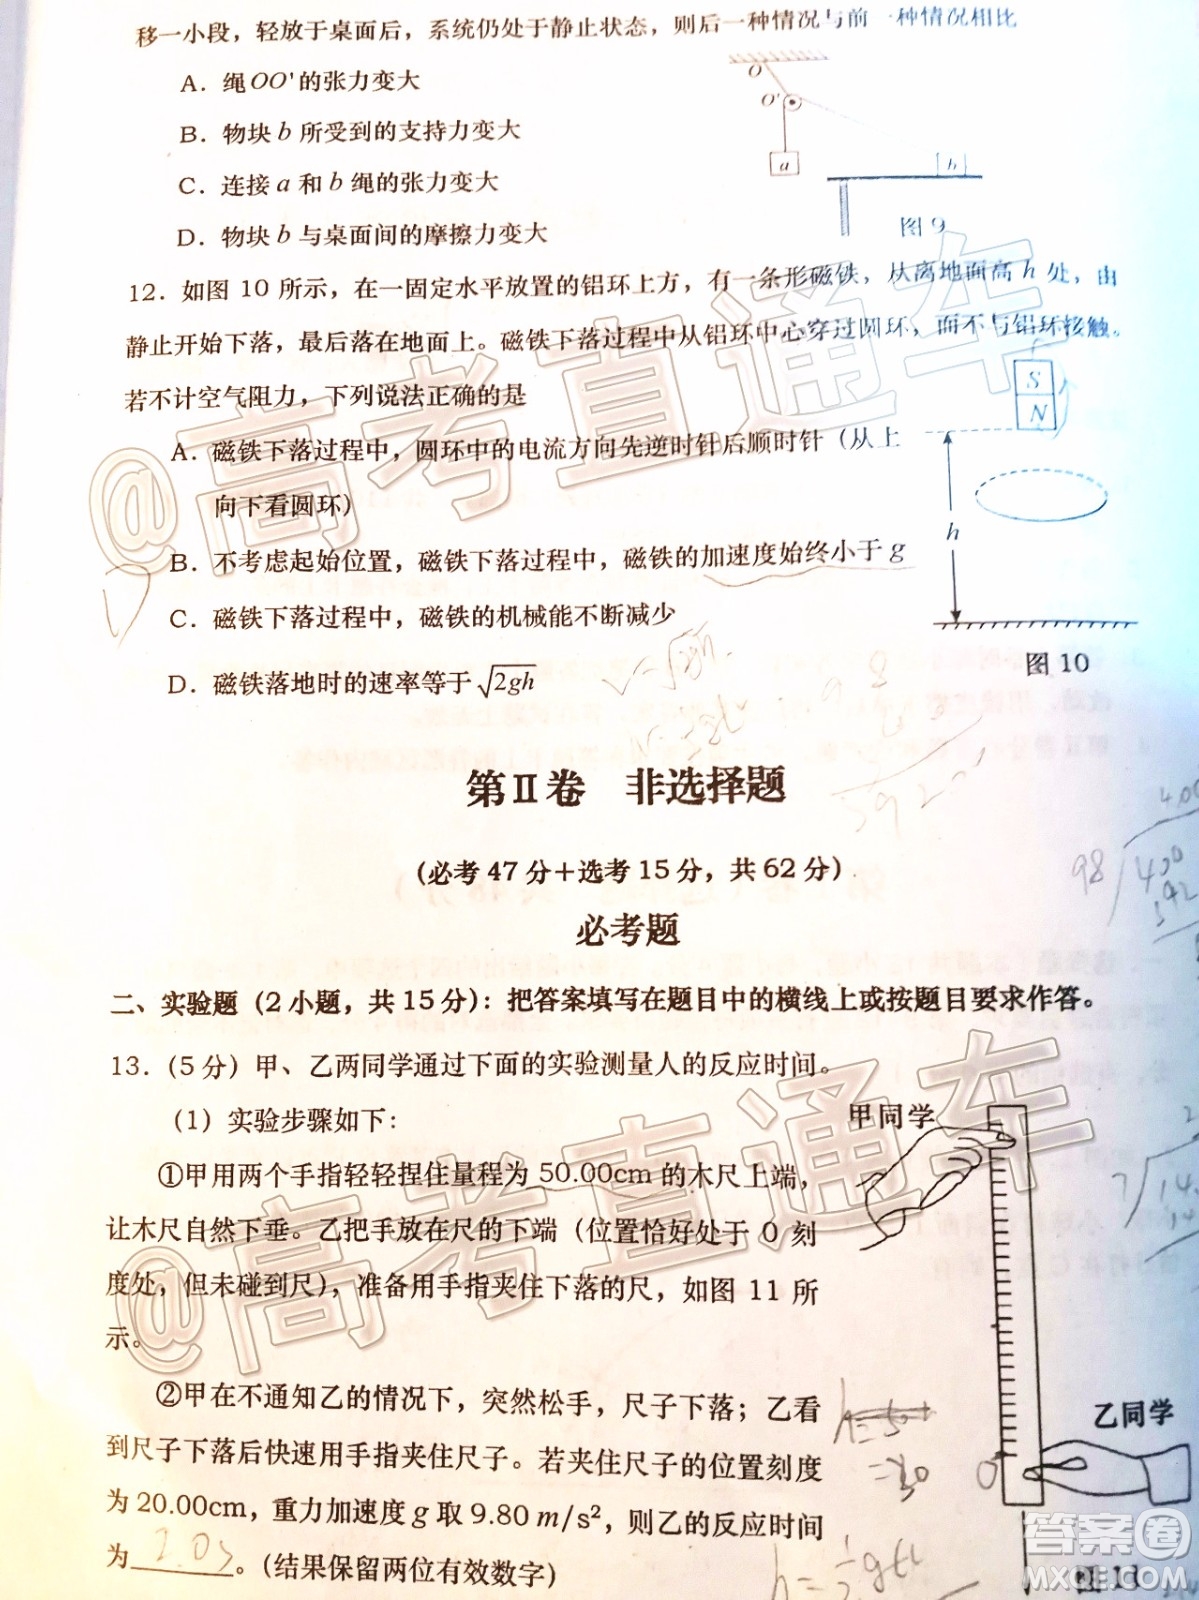 移一小段，轻放于桌面后，系统仍处于静止状态，则后一种情况与前一种情况相比
A．绳OO'的张力变大
B．物块 b 所受到的支持力变大
C．连接 a 和 b 绳的张力变大
D．物块 b 与桌面间的摩擦力变大
O
O'
a
b
图 9
12．如图 10 所示，在一固定水平放置的铝环上方，有一条形磁铁，从离地面高 h 处，由
静止开始下落，最后落在地面上。磁铁下落过程中从铝环中心穿过圆环，而不与铝环接触。
若不计空气阻力，下列说法正确的是
A．磁铁下落过程中，圆环中的电流方向先逆时针后顺时针（从上
向下看圆环）
B．不考虑起始位置，磁铁下落过程中，磁铁的加速度始终小于 g
C．磁铁下落过程中，磁铁的机械能不断减少
D．磁铁落地时的速率等于√2gh
S
N
h
图 10
第Ⅱ卷 非选择题
（必考 47 分＋选考 15 分，共 62 分）
必考题
二、实验题（2 小题，共 15 分）：把答案填写在题目中的横线上或按题目要求作答。
13．（5 分）甲、乙两同学通过下面的实验测量人的反应时间。
（1）实验步骤如下：
①甲用两个手指轻轻捏住量程为 50.00cm 的木尺上端，
让木尺自然下垂。乙把手放在尺的下端（位置恰好处于 0 刻
度处，但未碰到尺），准备用手指夹住下落的尺，如图 11 所
示。
②甲在不通知乙的情况下，突然松手，尺子下落；乙看
到尺子下落后快速用手指夹住尺子。若夹住尺子的位置刻度
为 20.00cm，重力加速度 g 取 9.80 m/s²，则乙的反应时间
为______。（结果保留两位有效数字）
甲同学
乙同学
0
图 11
98
400
@高考直通车
@高考直通车
答案圈
MXQE.COM